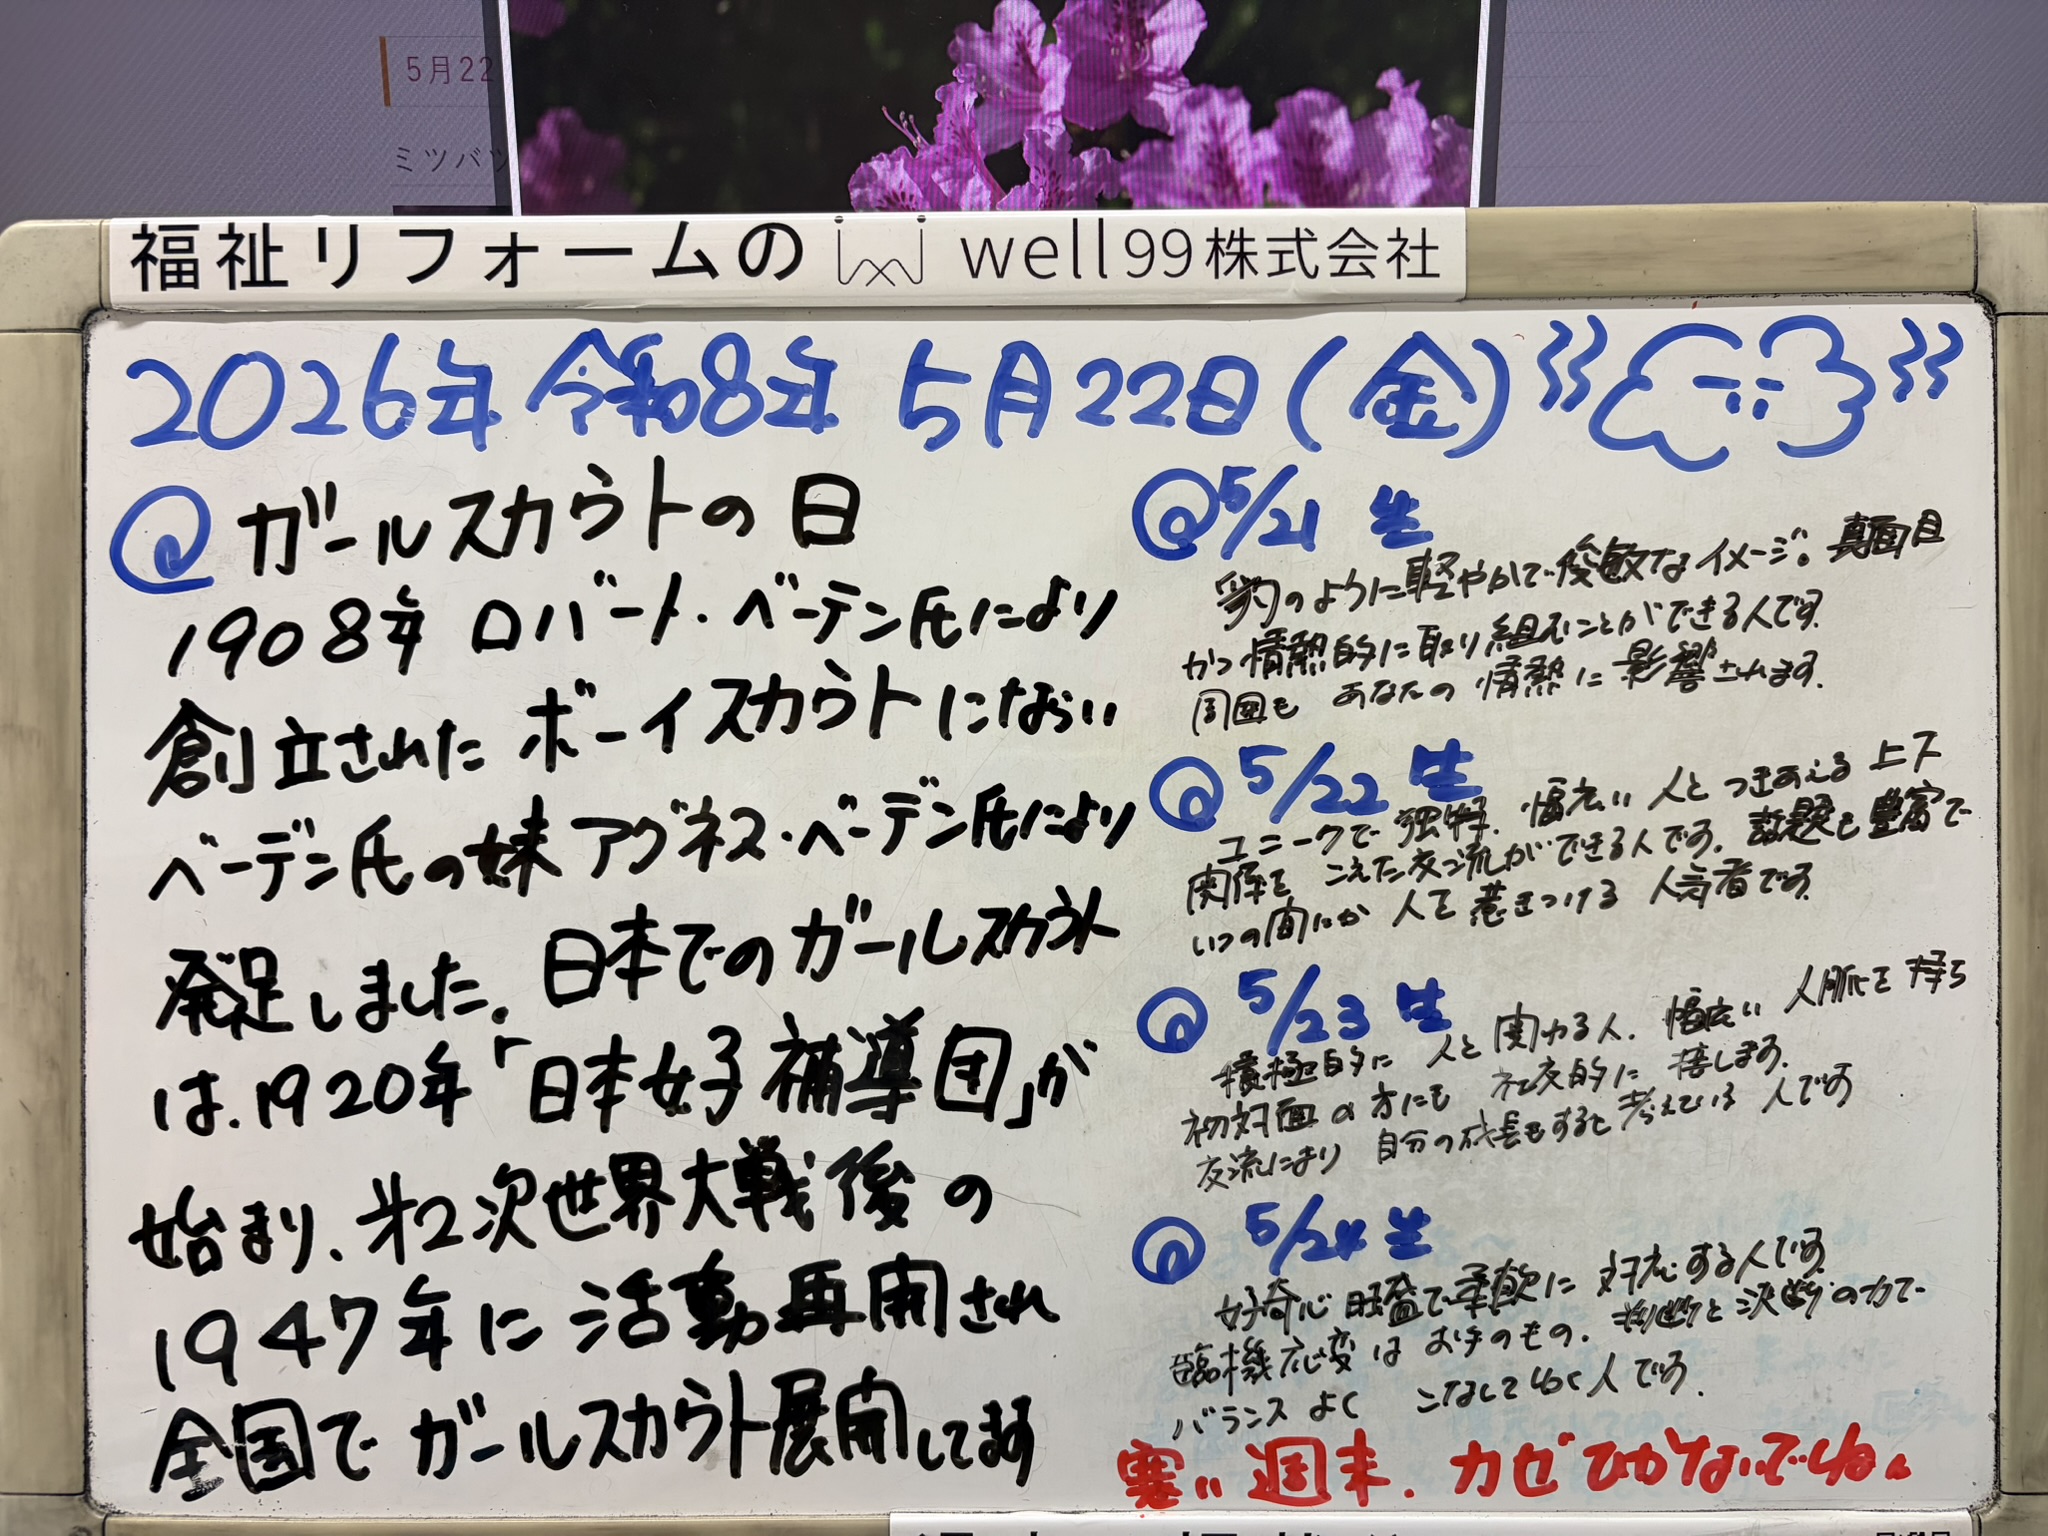 5月22
ミツバツ
福祉リフォームの well99株式会社
2026年 令和8年 5月22日(金)
ガールスカウトの日
1908年 ロバート・ベーデン氏により
創立された ボーイスカウトにならい
ベーデン氏の妹 アグネス・ベーデン氏により
発足しました。日本でのガールスカウト
は、1920年「日本女子補導団」が
始まり、第2次世界大戦後の
1947年に活動再開され
全国でガールスカウト展開してます
5/21 生
豹のように軽やかで俊敏なイメージ。真面目
かつ情熱的に取り組むことができる人です。
周囲も あなたの 情熱に影響されます。
5/22 生
ユニークで独特、幅広い人とつきあえる 上下
関係を こえた交流ができる人です。話題も豊富で
いつの間にか 人を惹きつける 人気者です。
5/23 生
積極的に 人と関わる人、幅広い 人脈を持ち
初対面の方にも 社交的に接します。
交流により 自分の成長もすると考えている人です
5/24 生
好奇心旺盛で柔軟に対応する人です。
臨機応変はお手のもの。判断と決断の力で
バランスよく こなしてゆく人です。
寒い週末、カゼひかないでね。